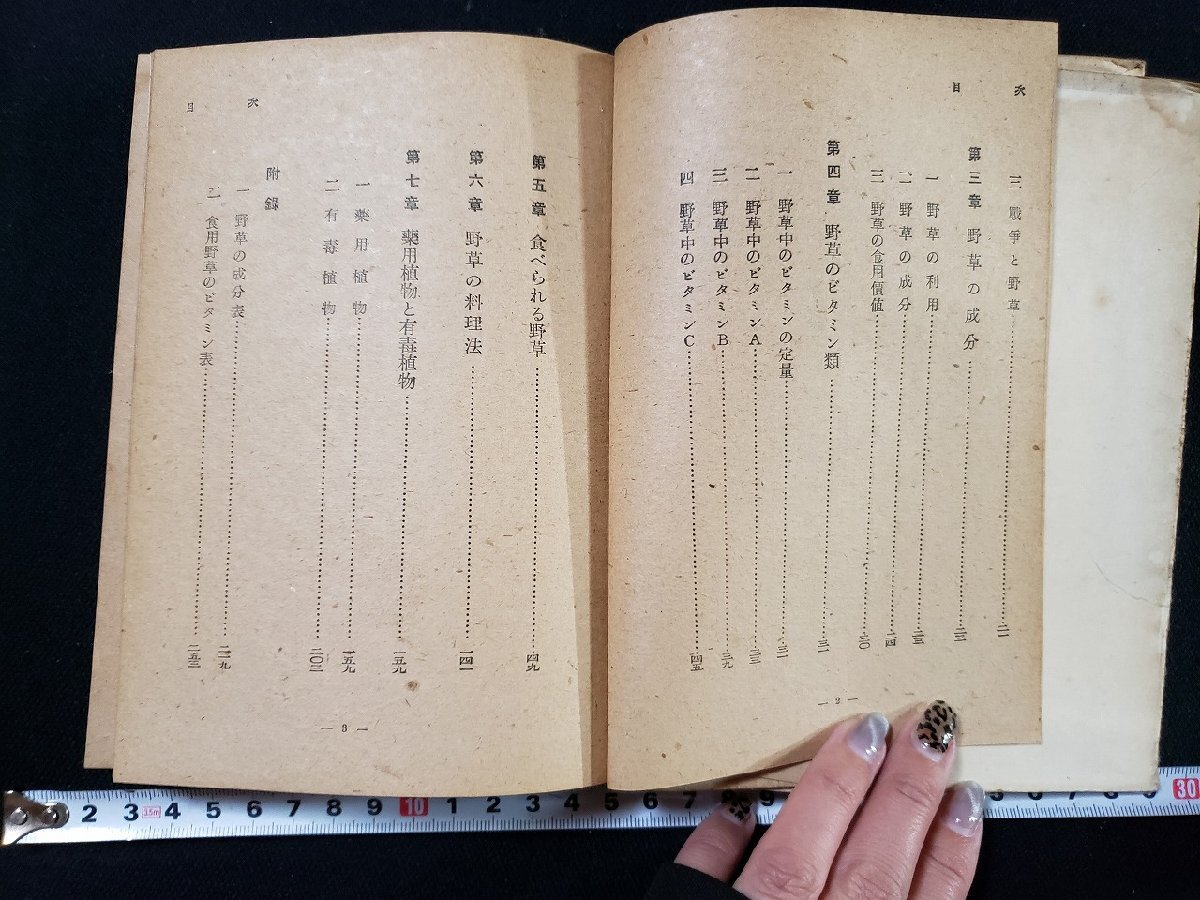 目次
三 戰爭と野草……二一
第三章 野草の成分……二三
一 野草の利用……二三
二 野草の成分……二四
三 野草の食用價値……三〇
第四章 野草のビタミン類……三二
一 野草中のビタミンの定量……三二
二 野草中のビタミンA……三三
三 野草中のビタミンB……三九
四 野草中のビタミンC……四五
— 2 —
目次
第五章 食べられる野草……四九
第六章 野草の料理法……一四一
第七章 藥用植物と有毒植物……一五九
一 藥用植物……一五九
二 有毒植物……二〇二
附錄
一 野草の成分表……二一九
二 食用野草のビタミン表……二五三
— 3 —
2 3 3.5m 4 5 6 7 8 9 10 1 2 3 4 5 6 7 8 9 30